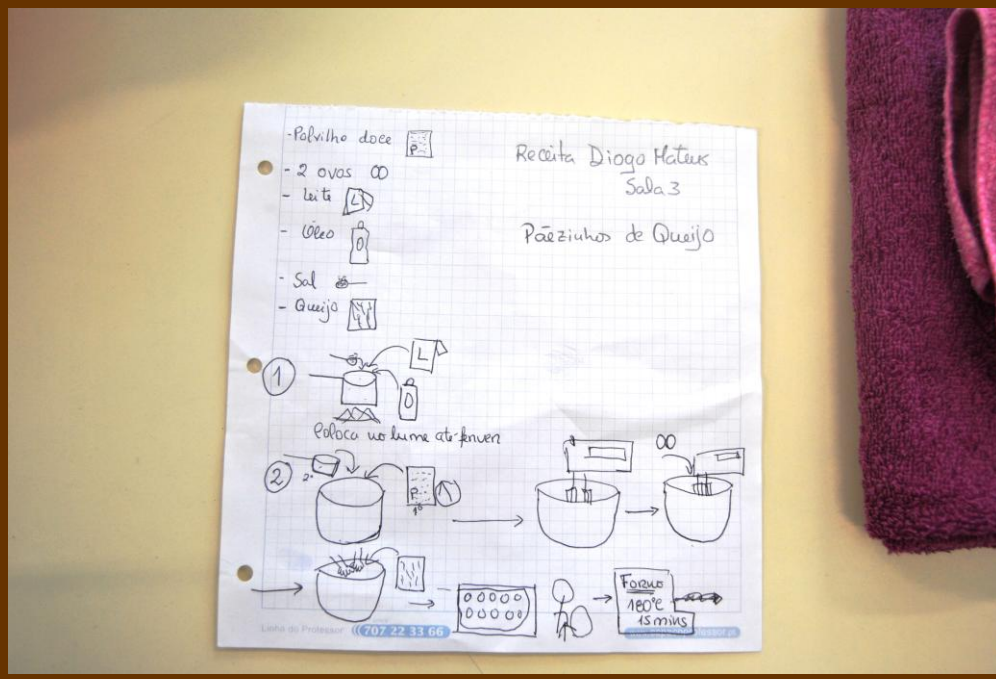 - Polvilho doce P
- 2 ovos
- Leite L
- Óleo O
- Sal
- Queijo
Receita Diogo Mateus
Sala 3
Pãezinhos de Queijo
1
L
O
Coloca no lume até ferver
2
2º
P
1º
FORNO
180ºC
15 mins
Linha do Professor: 707 22 33 66